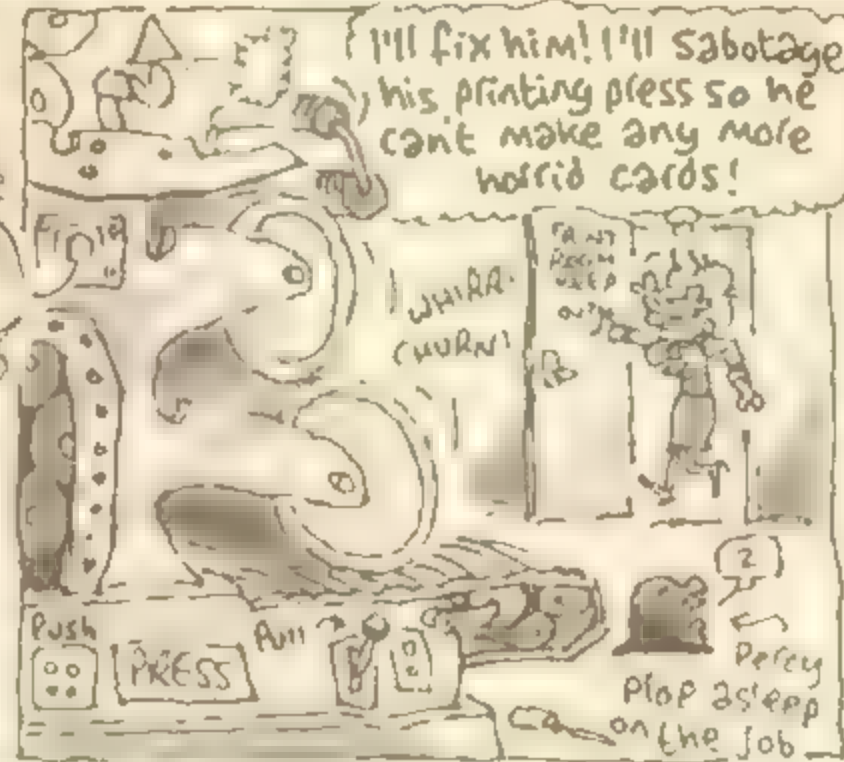 I'll fix him! I'll sabotage
his printing press so he
can't make any more
horrid cards!
WHIRR!
CHURN!
PRINT
ROOM
KEEP
OUT!
Push
PRESS
Pull
Z
Percy
Plop asleep
on the job